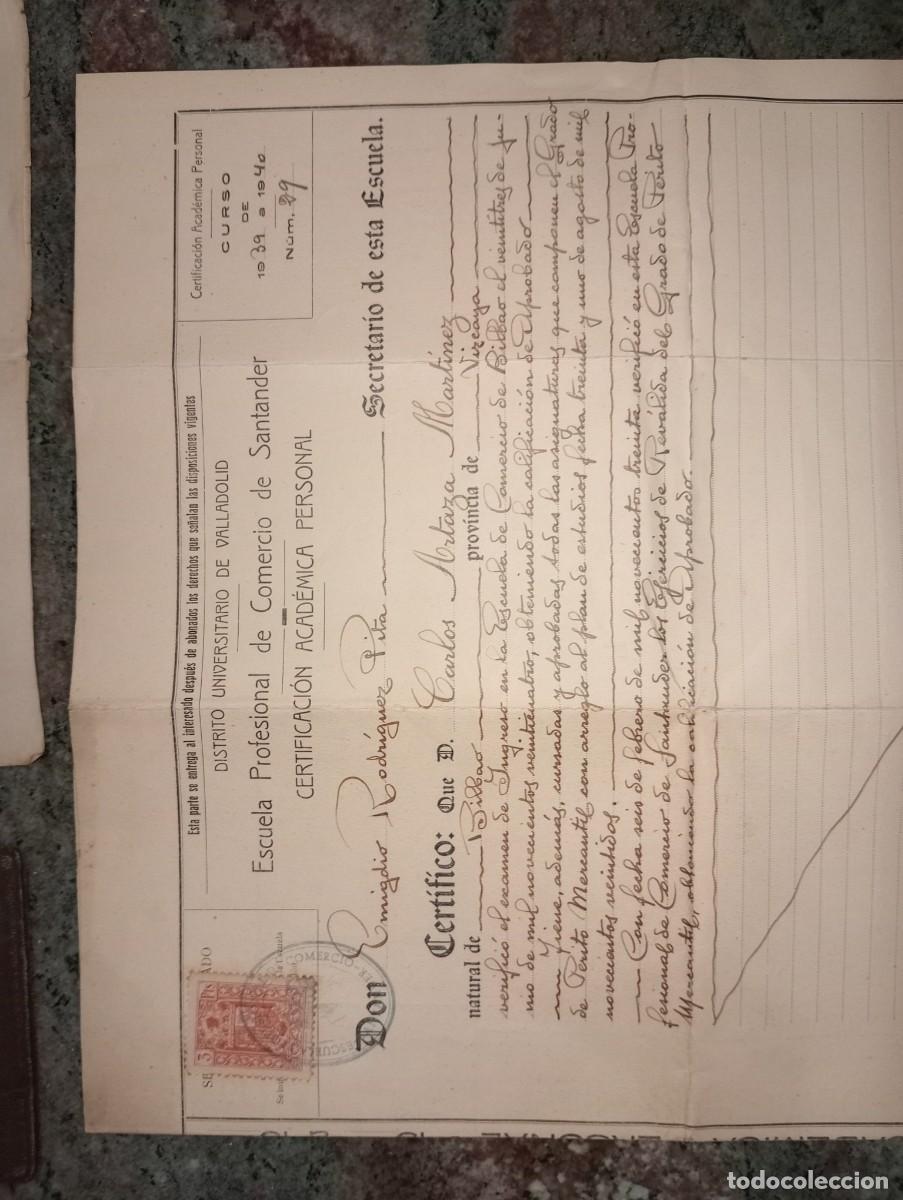 Esta parte se entrega al interesado después de abonados los derechos que señalan las disposiciones vigentes
DISTRITO UNIVERSITARIO DE VALLADOLID
Escuela Profesional de Comercio de Santander
CERTIFICACIÓN ACADÉMICA PERSONAL
Certificación Académica Personal
CURSO
DE
1939 a 1940
Núm. 29
3 Pts
COMERCIO
Don Emigdio Rodríguez Pita Secretario de esta Escuela.
Certifico: Que D. Carlos Artaza Martínez
natural de Bilbao provincia de Vizcaya
verificó el examen de Ingreso en la Escuela de Comercio de Bilbao el veintitres de ju-
nio de mil novecientos veinticuatro, obteniendo la calificación de Aprobado
Tiene, además, cursadas y aprobadas todas las asignaturas que componen el Grado
de Périto Mercantil con arreglo al plan de estudios fecha treinta y uno de agosto de mil
novecientos veintidos.
Con fecha seis de febrero de mil novecientos treinta verificó en esta Escuela Pro-
fesional de Comercio de Santander los Ejercicios de Reválida del Grado de Périto
Mercantil, obteniendo la calificación de Aprobado.
todocoleccion